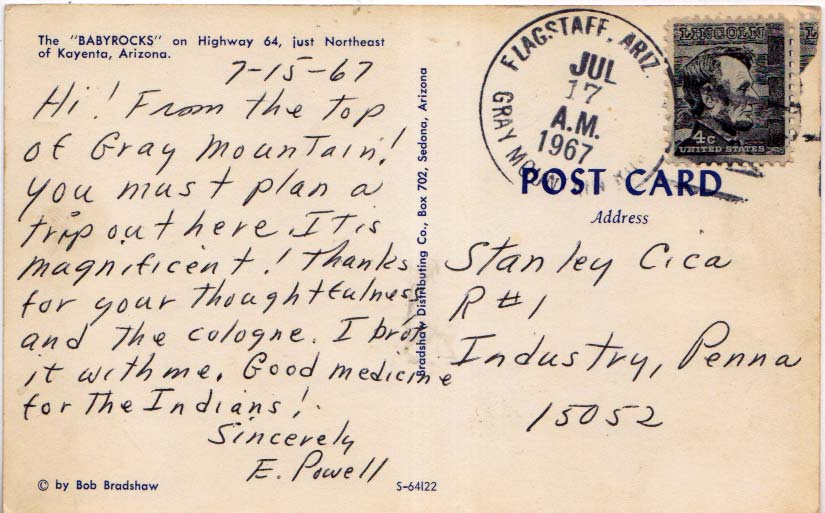 The "BABYROCKS" on Highway 64, just Northeast
of Kayenta, Arizona.
7-15-67
Hi! From the top
of Gray Mountain!
you must plan a
trip out here. It is
magnificent! Thanks
for your thoughtfulness
and the cologne. I brot
it with me. Good medicine
for the Indians!
Sincerely
E. Powell
© by Bob Bradshaw
S-64122
Bradshaw Distributing Co., Box 702, Sedona, Arizona
FLAGSTAFF, ARIZ.
JUL
17
A.M.
1967
GRAY MOUNTAIN
LINCOLN
4c
UNITED STATES
POST CARD
Address
Stanley Cica
R #1
Industry, Penna
15052